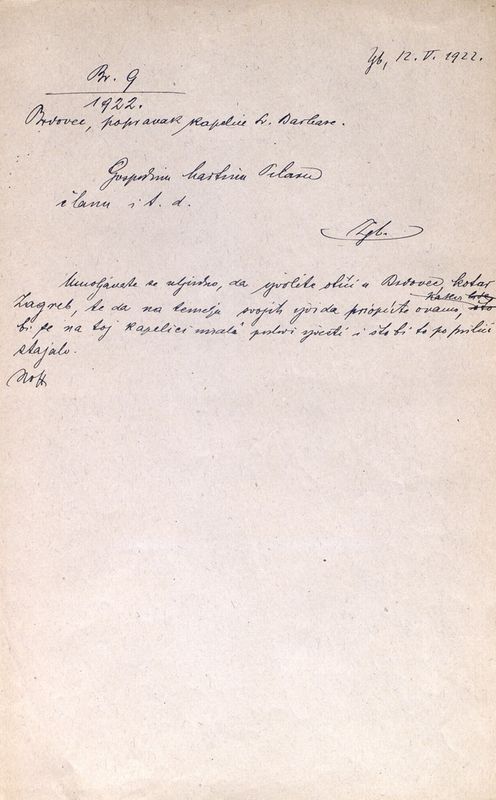 Zgb, 12. V. 1922.
Br. 9
1922.
Brdovec, popravak kapelice sv. Barbare.
Gospodinu Martinu Pilaru
članu i t. d.
Zgb.
Umoljavate se uljudno, da izvolite otići u Brdovec, kotar
Zagreb, te da na temelju svojih izvida priopćite ovamo, što
bi se na toj kapelici moralo izvesti i što bi to po prilici
stajalo.